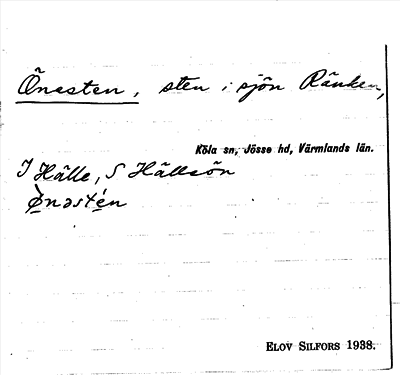 Önesten, sten i sjön Ränken,
Köla sn, Jösse hd, Värmlands län.
I Hälle, S Hällsön
ø̱nəsté̱n
ELOV SILFORS 1938.